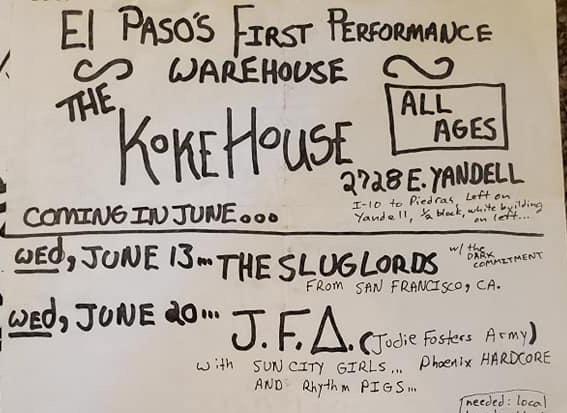 El PASO'S FIRST PERFORMANCE
WAREHOUSE
THE KOKEHOUSE
ALL
AGES
2728 E. YANDELL
I-10 to Piedras, Left on
Yandell, 1/2 block, white building
on left...
COMING IN JUNE...
WED, JUNE 13... THE SLUGLORDS w/ the DARK COMMITMENT
FROM SAN FRANCISCO, CA.
WED, JUNE 20... J.F.A. (Jodie Fosters Army)
with SUN CITY GIRLS... Phoenix HARDCORE
AND Rhythm PIGS...
needed: local